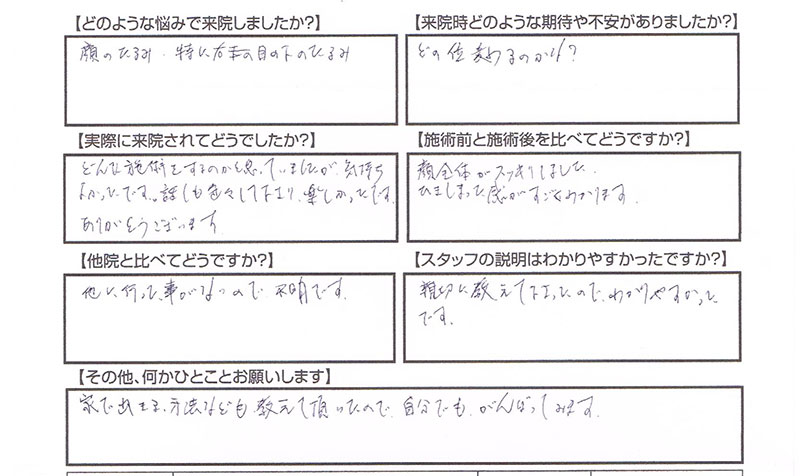 【どのような悩みで来院しましたか?】
顔のたるみ・特に右の目の下のたるみ
【来院時どのような期待や不安がありましたか?】
どの位変わるのかな?
【実際に来院されてどうでしたか?】
どんな施術をするのかと思っていましたが、気持ち
よかったです。話しも色々して下さり、楽しかったです。
ありがとうございます
【施術前と施術後を比べてどうですか?】
顔全体がスッキリしました。
ひきしまった感がすごくわかります。
【他院と比べてどうですか?】
他に行った事がないので、不明です。
【スタッフの説明はわかりやすかったですか?】
親切に教えて下さったので、わかりやすかった
です。
【その他、何かひとことお願いします】
家で出来る方法なども教えて頂いたので、自分でも、がんばってみます。